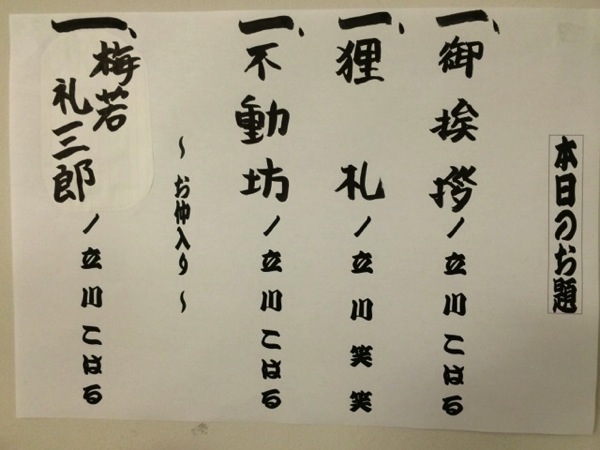 本日のお題
一、御挨拶/立川こはる
一、狸札/立川笑笑
一、不動坊/立川こはる
～お仲入り～
一、梅若礼三郎/立川こはる